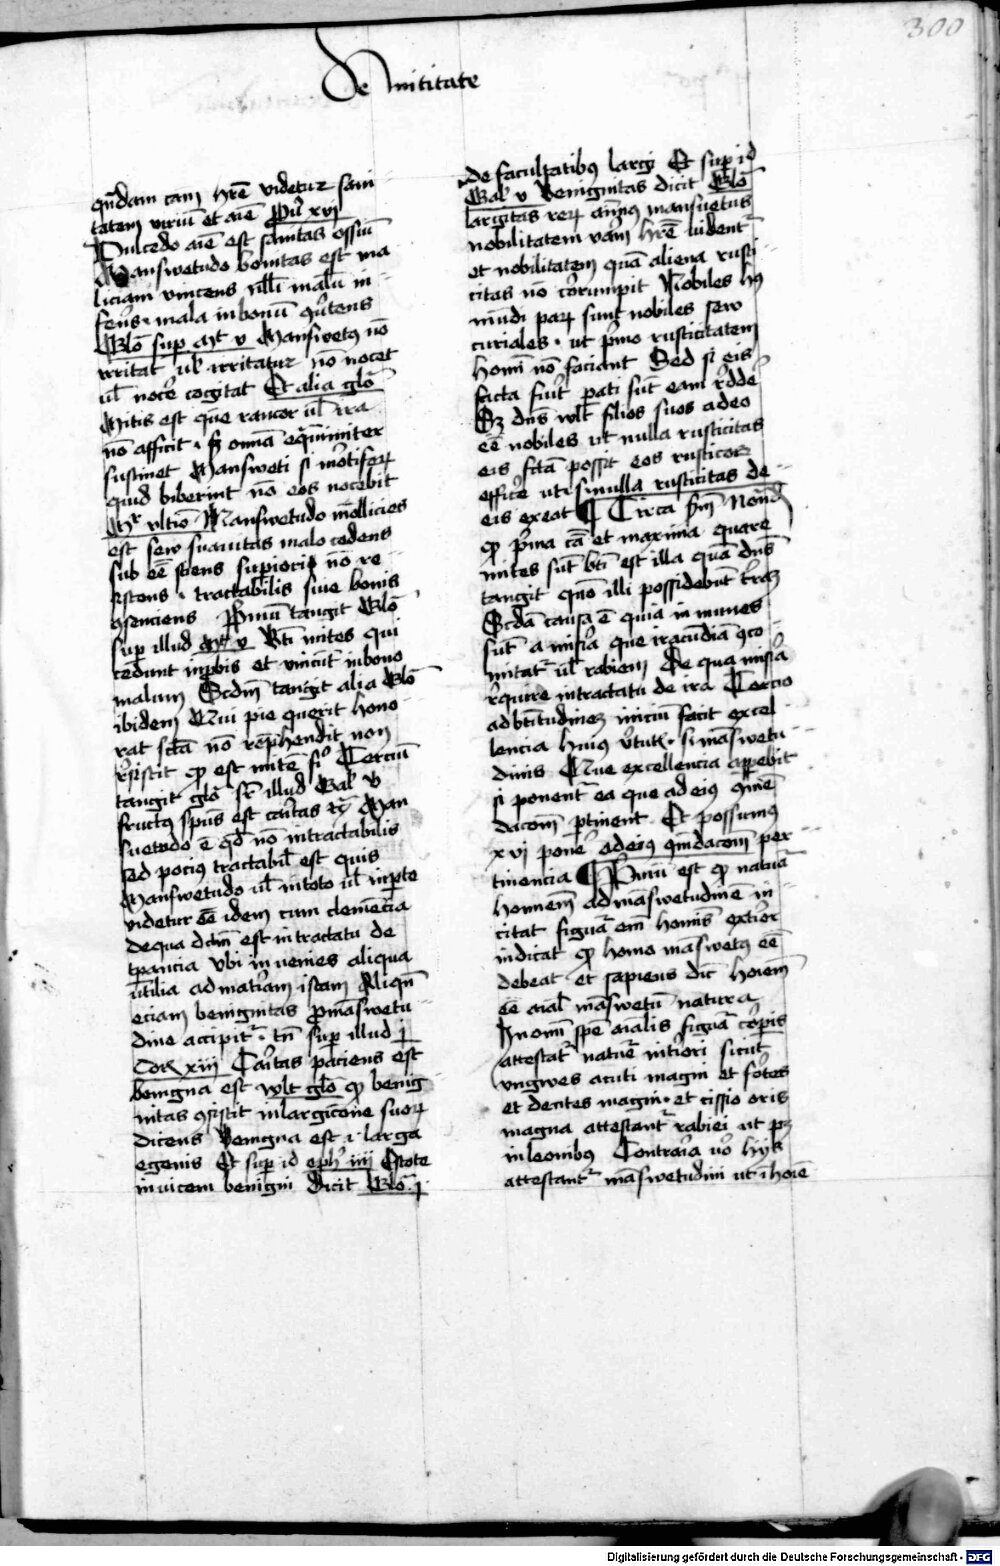 300
De Mititate
quādam cam hr̄e videtur sani
tatem virium et aīe Prū xvj
Dulcedo aīe est sanitas ossiū
Manswetudo bonitas est ma
liciam vincens null̄i malū in
ferēs · mala in bonū 9ūtens
Glō sup mt̄ v Manswetꝰ nō
irritat ul̄ irritatur nō nocet
ul̄ nocē̄ cogitat Et alia glō
Mitis est quē rancor ul̄ ira
nō afficit · sꝫ omīa equanimiter
sustinet Mansweti si mōtiferꝝ
quid biberint nō eos nocebit
Mr̄ vltiō Manswetudo mollicies
est seu suauitas malo cedens
sub eē sciens supiori nō re
sistens · tractabilis siue bonis
9senciens Primū tangit Glō
sup illud mt̄ v Bt̄i mites qui
cedunt inprobis et vincūt in bono
malum Scdm̄ tangit alia Glō
ibidem Qui pie querit hono
rat sctā nō rep̄hendit non
resistit qꝫ est mitē fi° Terciū
tangit glō sr̄ illud Gal̄ v
fructꝰ spūs est caritas rc̄ Man
suetudo ē qd̄ nō intractabilis
sed pociꝰ tractabil̄ est quis
Manswetudo ul̄ in toto ul̄ in pte
videtur eē idem cum clemēcia
de qua dcm̄ est in tractatu de
tpancia vbi in venies aliqua
vtilia ad mat̄iam istam Aliqn̄
eciam benignitas p̄ manswetu
dine accipit̄ · tn̄ sup illud j
Cor xiij Caritas paciens est
benigna est vult glō qꝫ benig
nitas 9sistit in largicōne suorꝝ
dicens Benigna est · larga
egenis Et sup id eph̄ iiij Estote
in vicem benigni dicit Glō · j ·
de facultatibꝰ largi Et sup id
Gal̄ v Benignitas dicit Glō
largitas rerꝝ animꝰ mansuetus
nobilitatem vām hr̄e vident̄
et nobilitatem quā aliena rusti
citas nō corrumpit Nobiles hꝰ
mūdi parꝝ sunt nobiles seu
curiales · ut p̄mo rusticitatem
homī nō faciant Sed si eis
facta fūit pati sūt eam redde
Sꝫ dn̄s vult filios suos adeo
eē nobiles ut nulla rusticitas
eis fctā possit eos rusticos
efficere ut nulla rusticitas de
eis exeat ¶ Circa p̄m Nond
qꝫ p̄ma cā et maxima quare
mites sūt bt̄i est illa quā dn̄s
tangit qm̄ illi possidebūt terrā
Scdā causa ē quia in munes
sūt a miseria que iracundiā 9co
mitat̄ ul̄ rabiem De qua miseria
require in tractatu de ira Tercio
ad bt̄itudinē inicium facit excel
lencia huius vtutis · s · manswetu
dinis Que excellencia apparebit
si ponent̄ ea que ad eiꝰ 9men
dacōem ptinent Et possumꝰ
xvj pone ad eiꝰ 9mēdacōem per
tinencia ¶ Primū est qꝫ natura
homīem ad manswetudinē in
citat figura em̄ homīs exterior
indicat qꝫ homo manswetꝰ eē
debeat et sapiens dic̄ hoīem
eē aīal manswetū natura
In om̄i spē aīalis figura corporis
attestat̄ nature interiori sicut
vngwes acuti magni et fortes
et dentes magni · et cissio oris
magna attestant̄ rabiei ut pꝫ
in leonibꝰ Contraria vō hijs
attestant̄ manswetudini ut ī hoīe
Digitalisierung gefördert durch die Deutsche Forschungsgemeinschaft - DFG